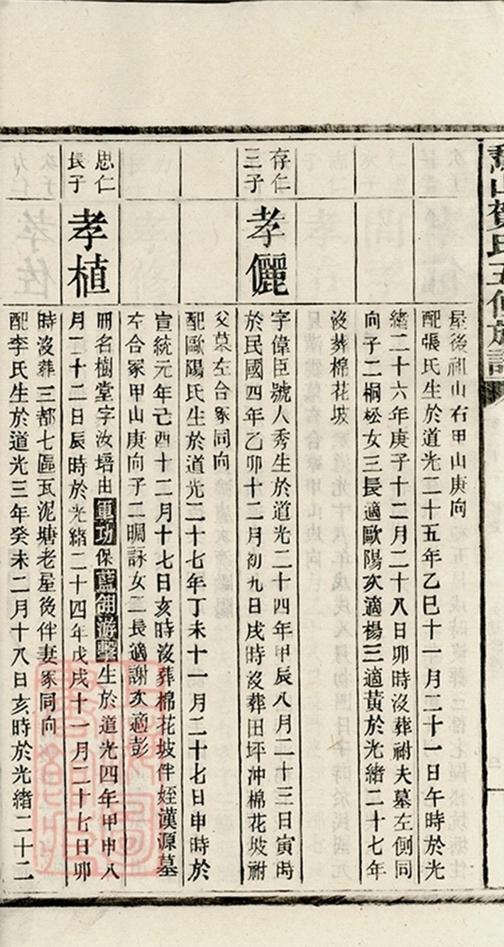 山賀氏五修族譜
屋後祖山右甲山庚向
配張氏生於道光二十五年乙巳十一月二十一日午時於光
緒二十六年庚子十二月二十八日卯時沒葬祔夫墓左側同
向子二桐松女三長適歐陽次適楊三適黃於光緒二十七年
沒葬棉花坡
存仁
三子
孝儷
字偉臣號人秀生於道光二十四年甲辰八月二十三日寅時
於民國四年乙卯十二月初九日戌時沒葬田坪沖棉花坡祔
父墓左合冢同向
配歐陽氏生於道光二十七年丁未十一月二十七日申時於
宣統元年己酉十二月十七日亥時沒葬棉花坡伴姪漢源墓
左合冢甲山庚向子二賜詠女二長適謝次適彭
思仁
長子
孝植
冊名樹堂字汝培由軍功保藍翎遊擊生於道光四年甲申八
月二十二日辰時於光緒二十四年戊戌十一月三十七日卯
時沒葬三都七區瓦泥塘老屋後伴妻冢同向
配李氏生於道光三年癸未二月十八日亥時於光緒二十二